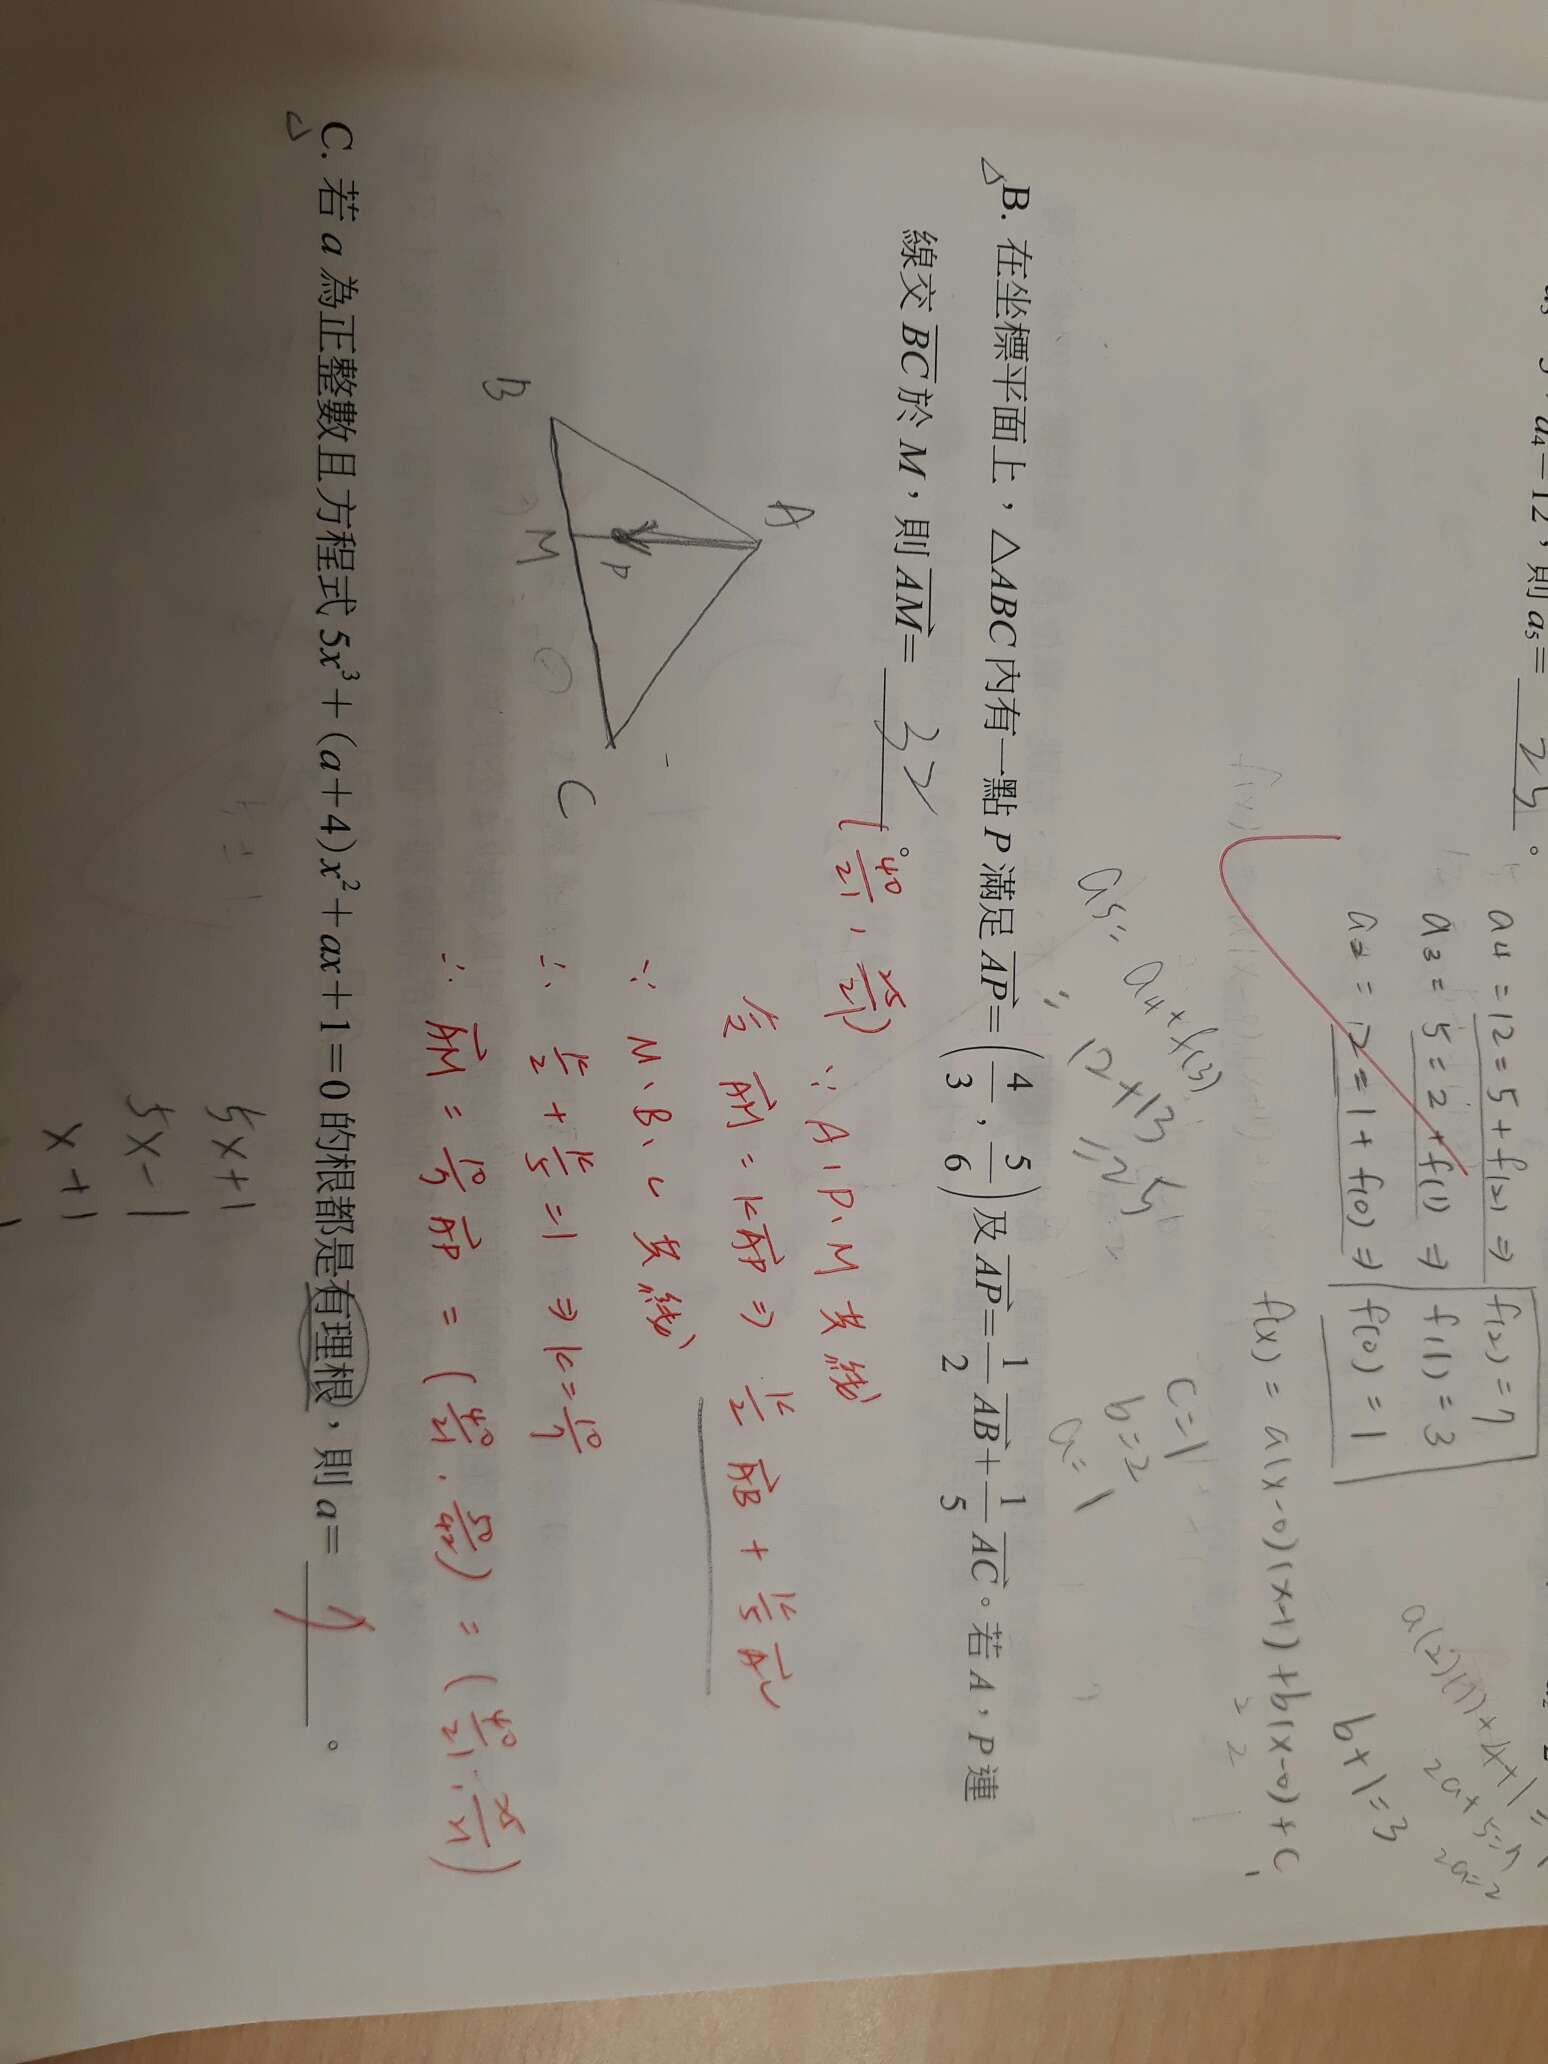 a₄=12，則 a₅= 25 。
a4 = 12 = 5 + f(2) ⇒ f(2) = 7
a3 = 5 = 2 + f(1) ⇒ f(1) = 3
a2 = 2 = 1 + f(0) ⇒ f(0) = 1
b+1=3
2a+5=7
2a=2
f(x) = a(x-0)(x-1) + b(x-0) + C
C=1
b=2
a=1
a5= a4+f(3)
= 12+13
=25
B. 在坐標平面上，△ABC 內有一點 P 滿足 \overrightarrow{AP}=(4/3, 5/6) 及 \overrightarrow{AP}=1/2 \overrightarrow{AB}+1/5 \overrightarrow{AC}。若 A，P 連
線交 \overline{BC} 於 M，則 \overrightarrow{AM}= 。
(40/21, 25/21)
∵ A, P、M 共線
令 \overrightarrow{AM} = k\overrightarrow{AP} ⇒ k/2 \overrightarrow{AB} + k/5 \overrightarrow{AC}
∵ M、B、C 共線
∴ k/2 + k/5 = 1 ⇒ k = 10/7
∴ \overrightarrow{AM} = 10/7 \overrightarrow{AP} = (40/21, 50/42) = (40/21, 25/21)
A
P
B
M
C
C. 若 a 為正整數且方程式 5x³+(a+4)x²+ax+1=0 的根都是有理根，則 a= 7 。
5x+1
5x-1
x+1